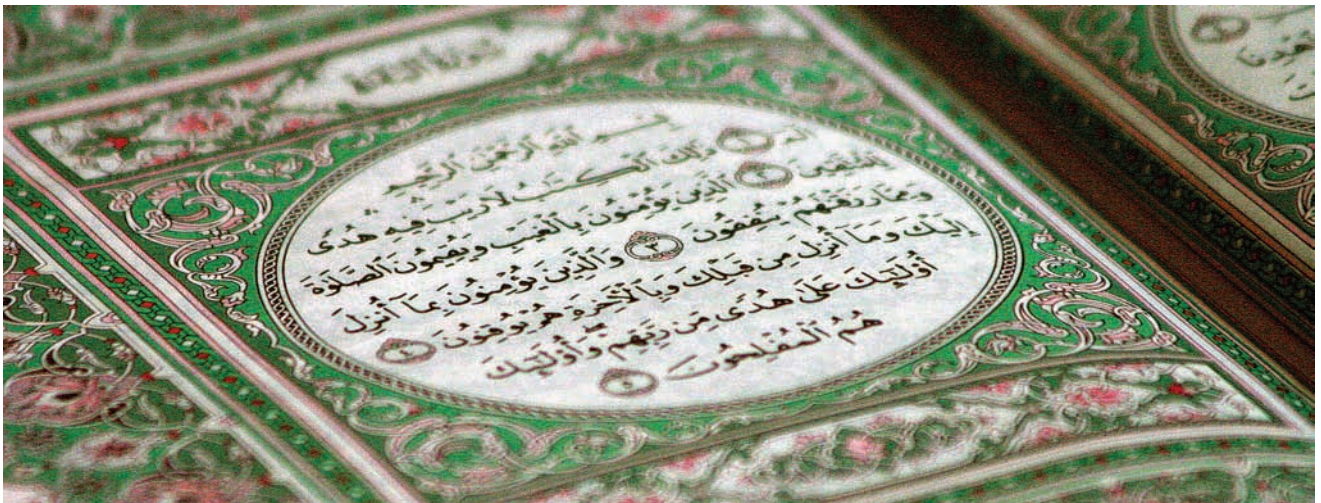 بِسْمِ اللَّهِ الرَّحْمَٰنِ الرَّحِيمِ
الٓمٓ ١ ذَٰلِكَ الْكِتَٰبُ لَا رَيْبَ فِيهِ هُدًى
لِلْمُتَّقِينَ ٢ الَّذِينَ يُؤْمِنُونَ بِالْغَيْبِ وَيُقِيمُونَ الصَّلَوٰةَ
وَمِمَّا رَزَقْنَٰهُمْ يُنْفِقُونَ ٣ وَالَّذِينَ يُؤْمِنُونَ بِمَآ أُنْزِلَ
إِلَيْكَ وَمَآ أُنْزِلَ مِنْ قَبْلِكَ وَبِالْأَخِرَةِ هُمْ يُوقِنُونَ ٤
أُولَٰٓئِكَ عَلَىٰ هُدًى مِنْ رَبِّهِمْ وَأُولَٰٓئِكَ
هُمُ الْمُفْلِحُونَ ٥